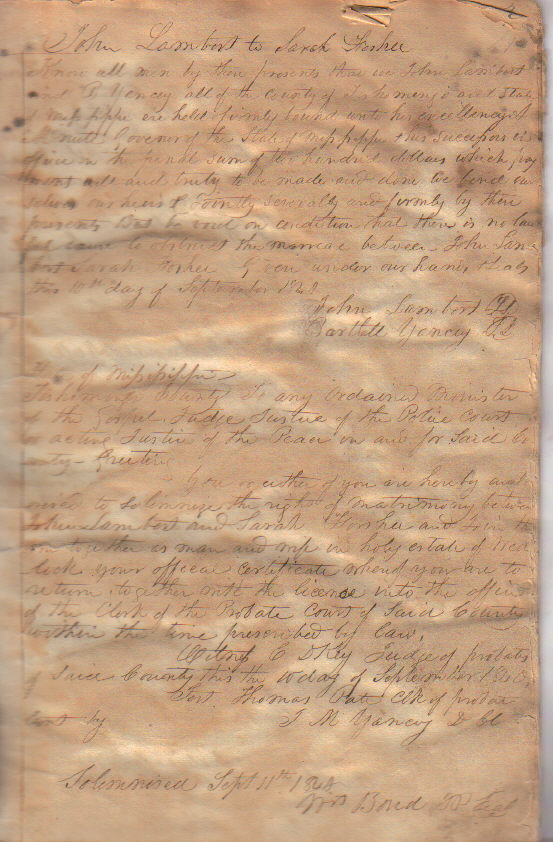 John Lambert to Sarah Forkee
Know all men by these presents that we John Lambert
and B Yancey all of the county of Tishomingo and State
of Mississippi are held & firmly bound unto his excellency
Governor of the State of Mississippi & his Successors in
office in the penal sum of two hundred dollars which pay
ment well and truly to be made and done we bind our
selves our heirs & Jointly severally and firmly by these
presents But to void on condition that there is no law
ful cause to obstruct the marriage between John Lam
bert Sarah Forkee Given under our hands & seals
this 10th day of September 1848
John Lambert
Bartlett Yancey
of Mississippi
Tishomingo County To any Ordained Minister
of the Gospel Judge Justice of the Police Court
or acting Justice of the Peace in and for Said Co
unty Greeting
You or either of you are hereby autho
rised to solemnize the rights of matrimony between
John Lambert and Sarah and Join the
m together as man and wife in holy estate of wed
lock your official certificate whereof you are to
return together with the license into the office
of the Clerk of the Probate Court of Said County
within the time prescribed by law.
C Judge of probate
of Said County this the 10 day of September 1848
Test. Thomas Pate Clk of probate
Court by T M Yancey D Clk
Solemnised Sept 11th 1848
Wm Boud JP